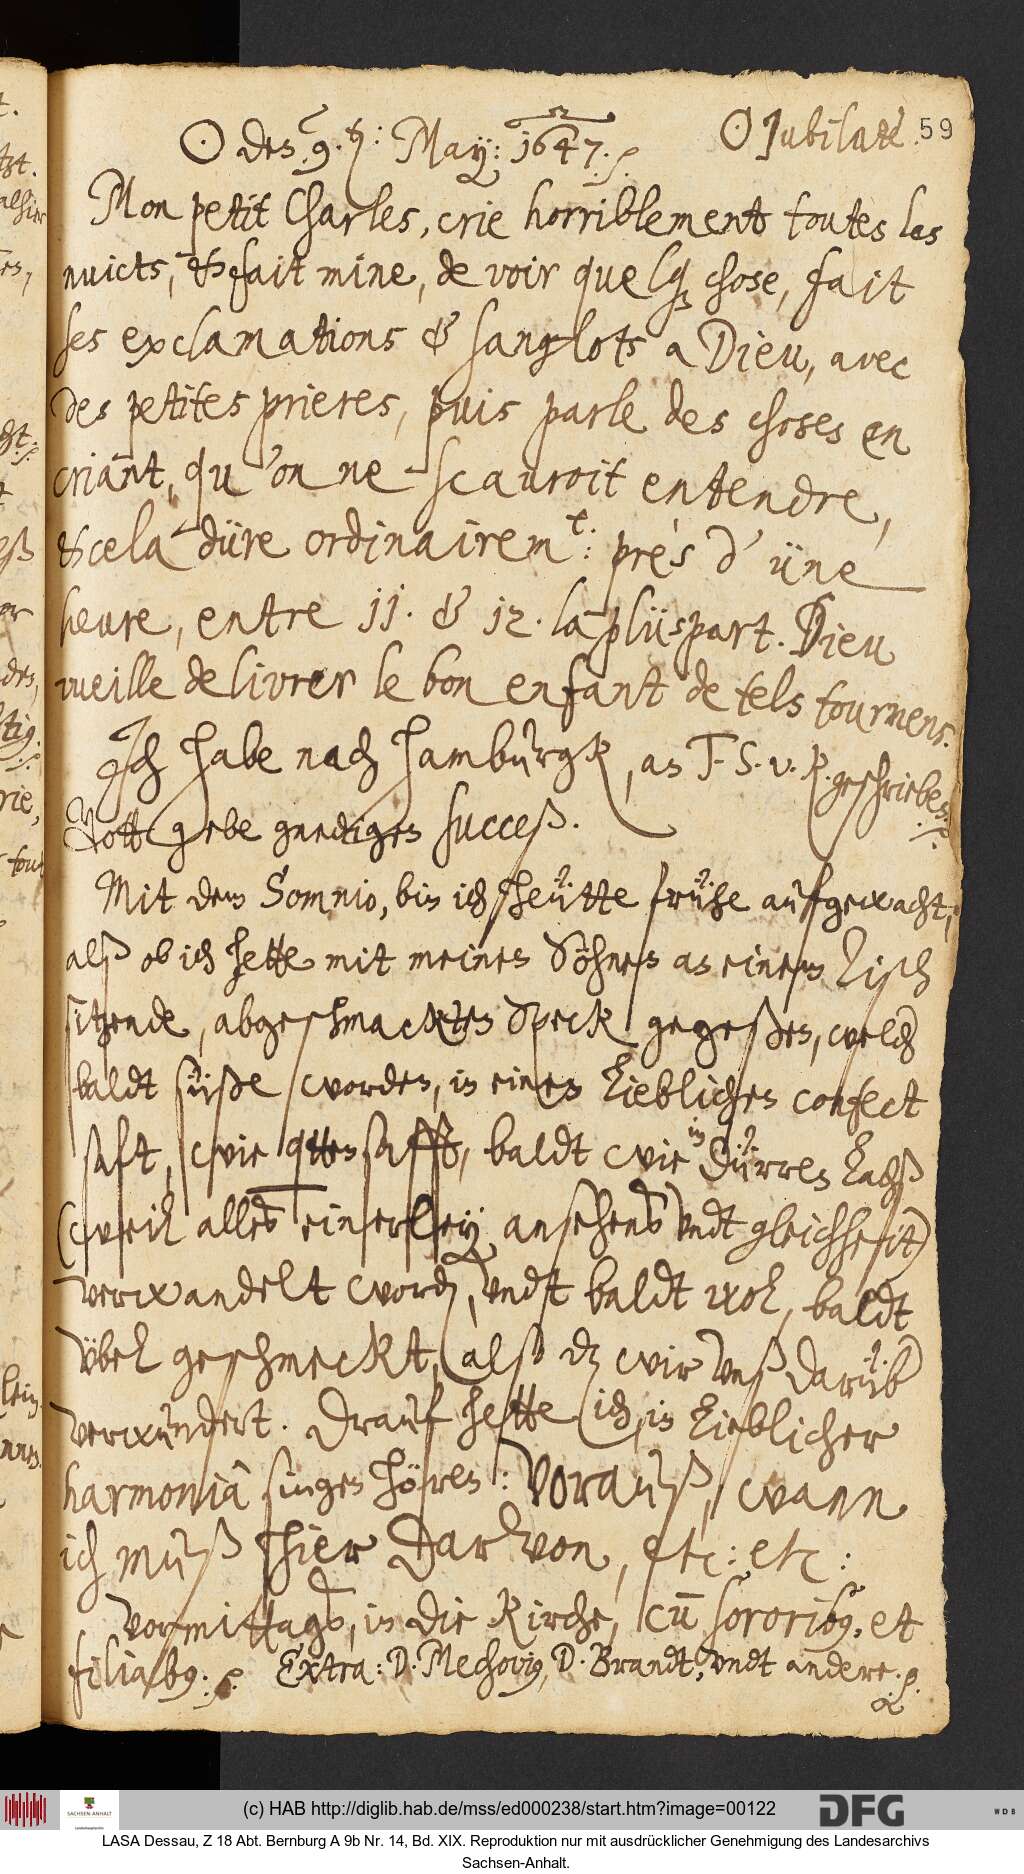 ☉ den 9. ten: May: 1647. ☉ Jubilate. 59
Mon petit Charles, crie horriblement toutes les
nuicts, & fait mine, de voir quelq chose, fait
ses exclamations & sanglots a Dieu, avec
des petites prieres, puis parle des choses en
criant, qu'on ne scauroit entendre,
& cela düre ordinairem.t: prés d'üne
heure, entre 11. & 12. la plüspart. Dieu
vueille delivrer le bon enfant de tels tourmens.
Ich habe nach Hamburgk, an T. S. v. P. geschrieben.
Gott gebe gnediges succeß.
Mit dem Somnio, bin ich heütte frühe aufgewacht,
alß ob ich hette mit meinen Söhnen an einem Tisch
sitzende, abgeschmackten Speck gegeßen, welch
baldt süße worden, in eines liebliches confect
saft, wie qttensafft, baldt wie in dürren Lachß
(weil alles einerley ansehens undt gleichheit)
verwandelt word, undt baldt wol, baldt
übel geschmeckt, alß dz wir unß darüb
verwundert. Drauf hette ich, in lieblicher
harmoniâ singen hören: Vorauß, wann
ich muß hier darvon, etc: etc:
Vormittags, in die Kirche, cū sororib9, et
filiab9. Extra: D. Mechovi9, D. Brandt, undt andere.
(c) HAB http://diglib.hab.de/mss/ed000238/start.htm?image=00122
DFG
WDB
SACHSEN-ANHALT
LASA Dessau, Z 18 Abt. Bernburg A 9b Nr. 14, Bd. XIX. Reproduktion nur mit ausdrücklicher Genehmigung des Landesarchivs
Sachsen-Anhalt.